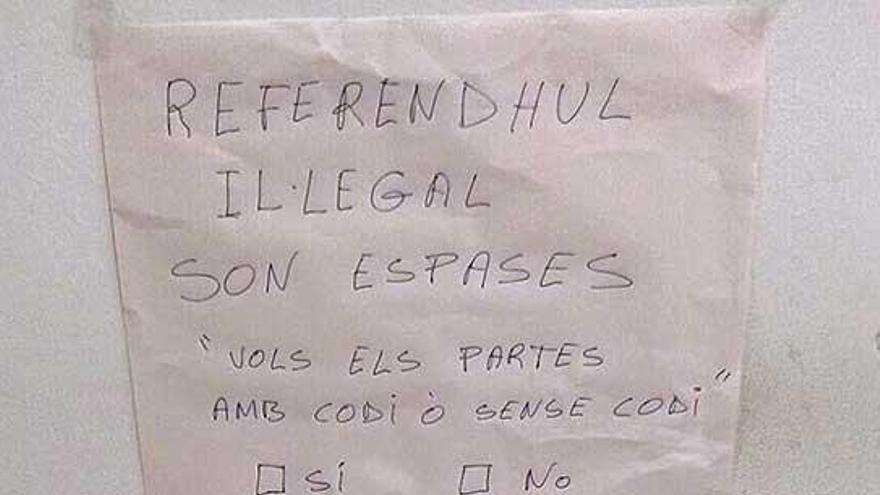 REFERENDHUL
IL·LEGAL
SON ESPASES
"VOLS ELS PARTES
AMB CODI Ò SENSE CODI"
☐ SÍ ☐ NO